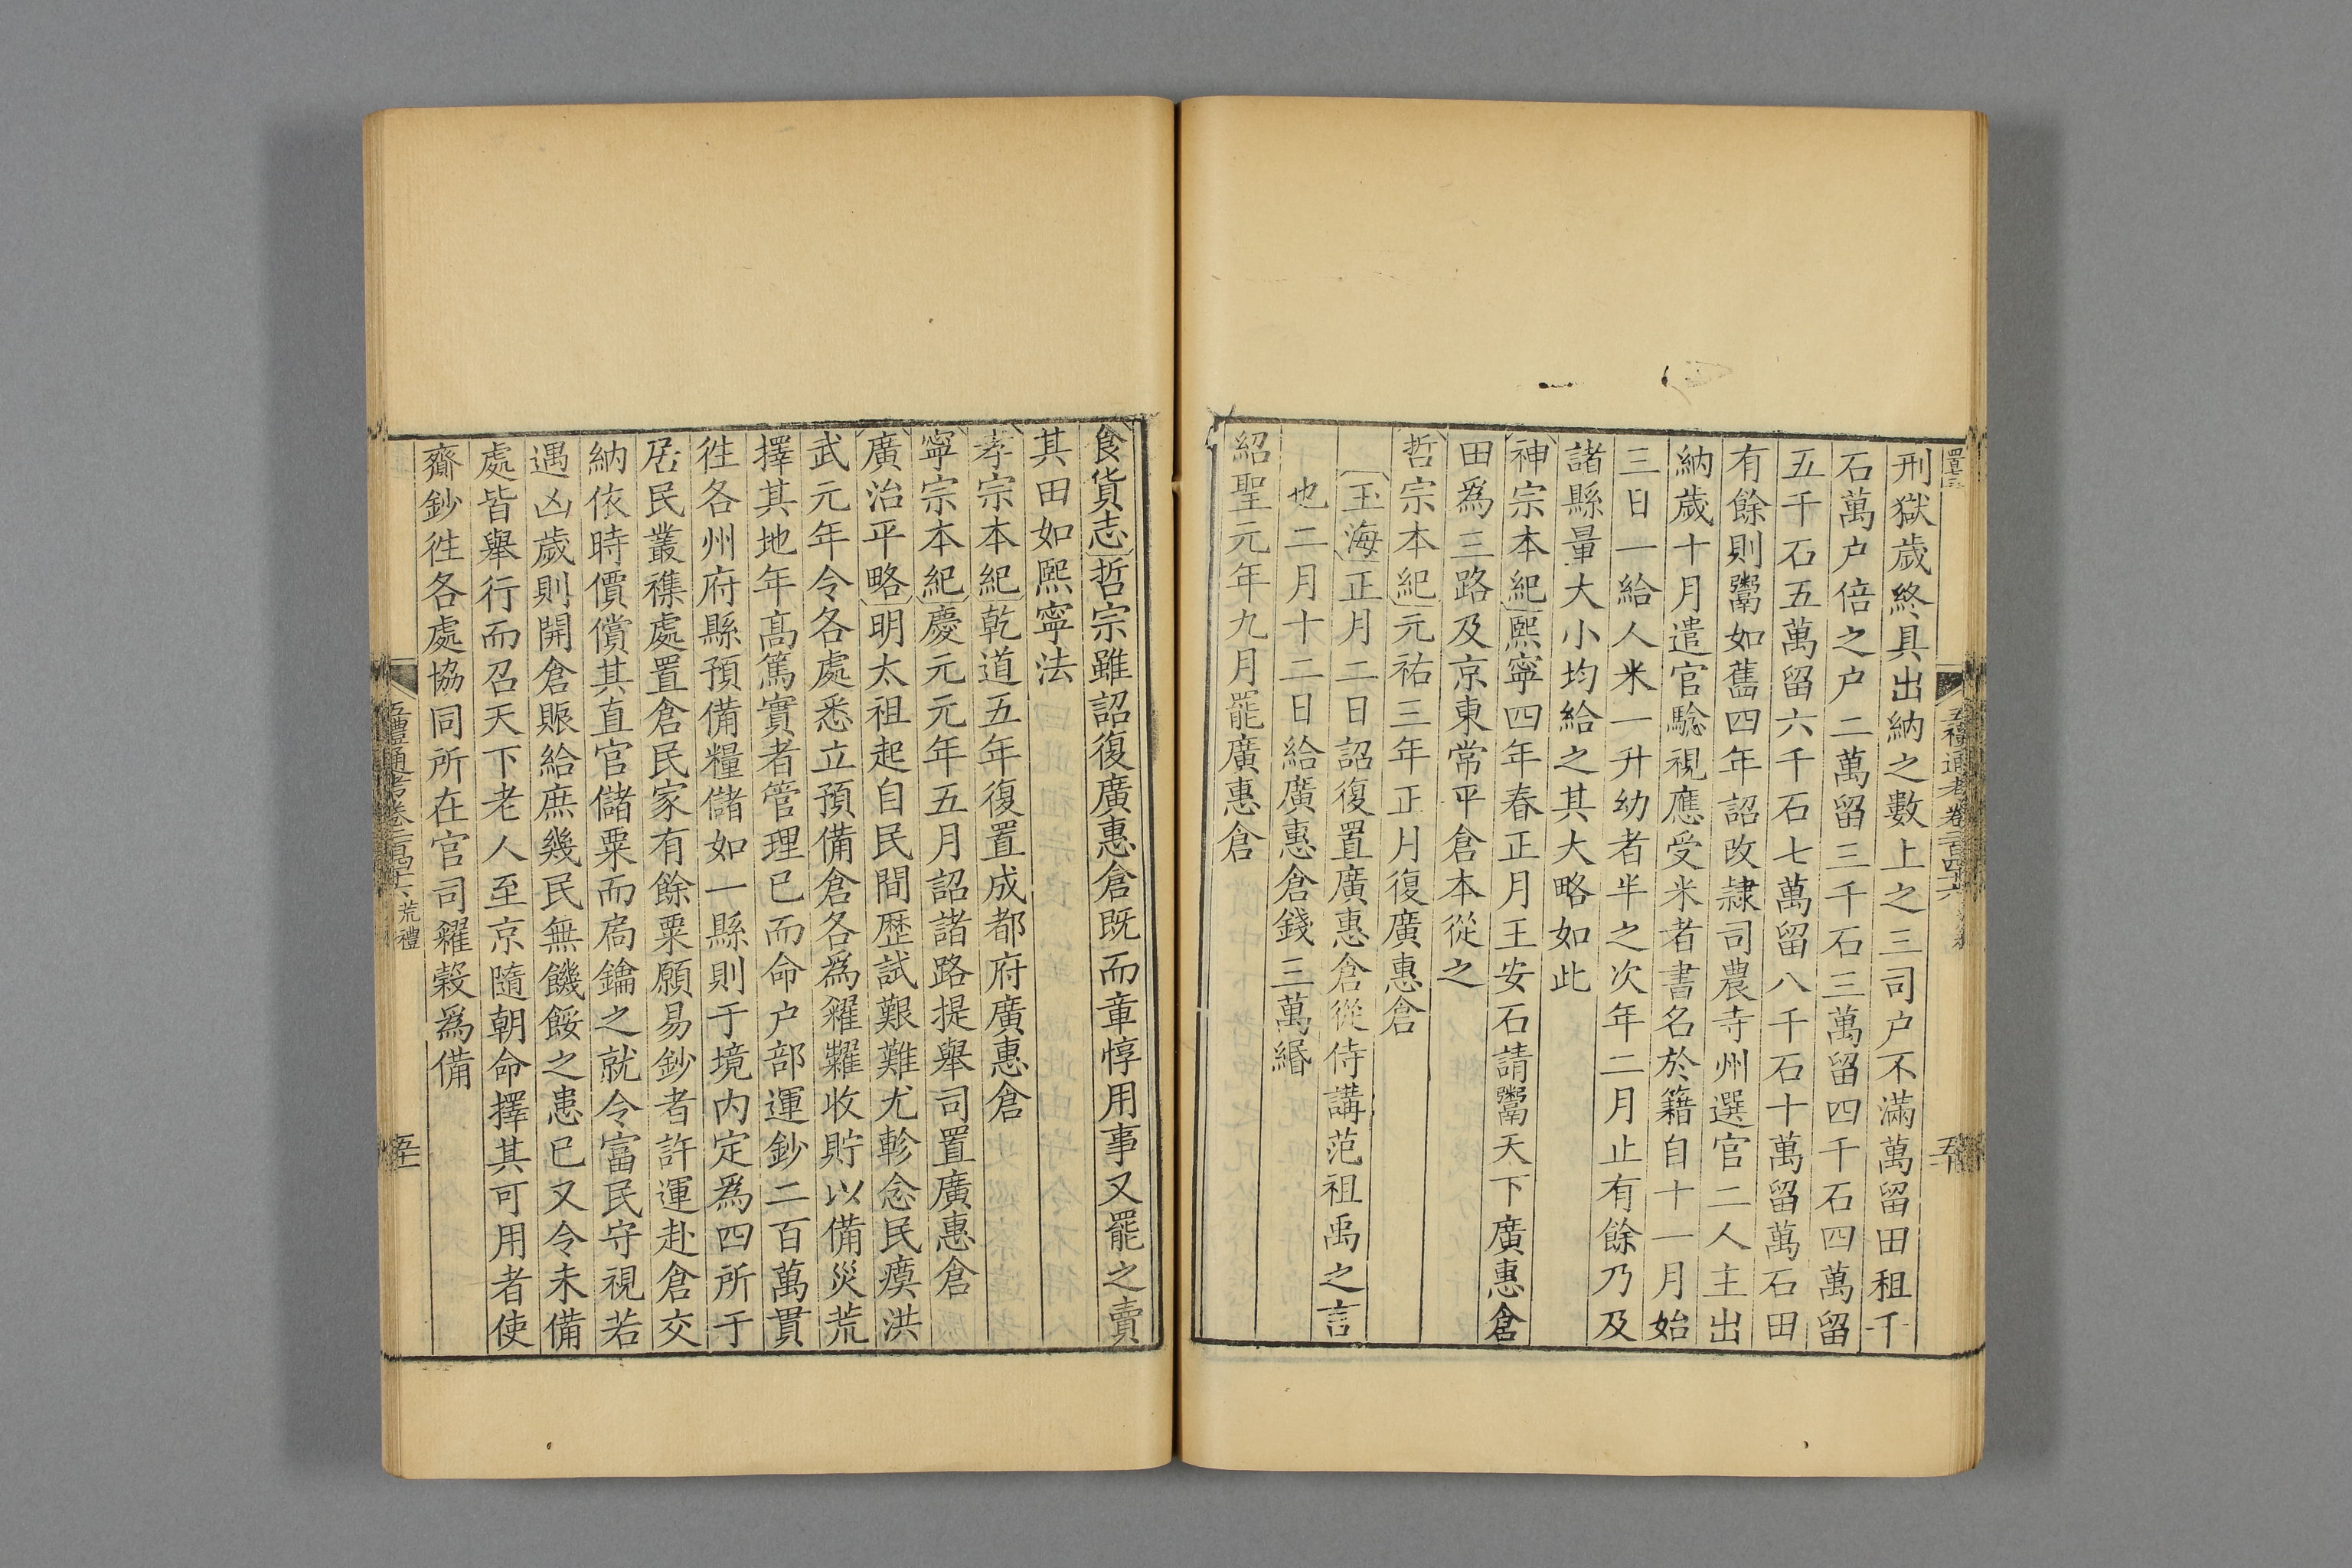 五禮通考卷二百四十六
刑獄歲終具出納之數上之三司户不滿萬留田租千
石萬户倍之户二萬留三千石三萬留四千石四萬留
五千石五萬留六千石七萬留八千石十萬留萬石田
有餘則鬻如舊四年詔改隷司農寺州選官二人主出
納歲十月遣官驗視應受米者書名於籍自十一月始
三日一給人米一升幼者半之次年二月止有餘乃及
諸縣量大小均給之其大略如此
神宗本紀熙寧四年春正月王安石請鬻天下廣惠倉
田爲三路及京東常平倉本從之
哲宗本紀元祐三年正月復廣惠倉
玉海正月二日詔復置廣惠倉從侍講范祖禹之言
也二月十二日給廣惠倉錢三萬緡
紹聖元年九月罷廣惠倉
食貨志哲宗雖詔復廣惠倉既而章惇用事又罷之賣
其田如熙寧法
孝宗本紀乾道五年復置成都府廣惠倉
寧宗本紀慶元元年五月詔諸路提舉司置廣惠倉
廣治平略明太祖起自民間歷試艱難尤軫念民瘼洪
武元年令各處悉立預備倉各爲糴糶收貯以備災荒
擇其地年高篤實者管理已而命户部運鈔二百萬貫
徃各州府縣預備糧儲如一縣則于境内定爲四所于
居民叢襍處置倉民家有餘粟願易鈔者許運赴倉交
納依時價償其直官儲粟而扃鑰之就令富民守視若
遇凶歲則開倉賑給庶幾民無饑餒之患已又令未備
處皆舉行而召天下老人至京隨朝命擇其可用者使
齎鈔徃各處協同所在官司糴榖爲備
五禮通考卷二百四十六 荒禮